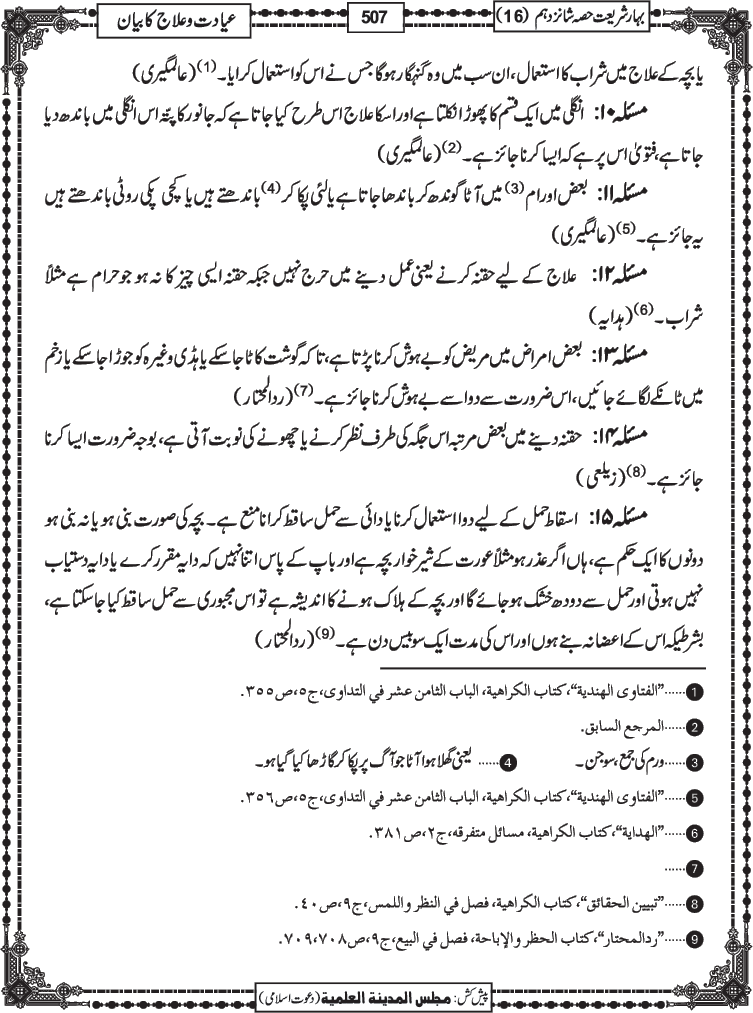 بہارِشریعت حصہ شانزدہم (16)
507
عیادت وعلاج کا بیان
یا بچہ کے علاج میں شراب کا استعمال، ان سب میں وہ گنہگار ہوگا جس نے اس کو استعمال کرایا۔(1) (عالمگیری)
مسئلہ۱۰: انگلی میں ایک قسم کا پھوڑا نکلتا ہے اور اسکا علاج اس طرح کیا جاتا ہے کہ جانور کا پتّہ اس انگلی میں باندھ دیا
جاتا ہے، فتویٰ اس پر ہے کہ ایسا کرنا جائز ہے۔(2) (عالمگیری)
مسئلہ۱۱: بعض اورام(3) میں آٹا گوندھ کر باندھا جاتا ہے یا لئی پکا کر(4) باندھتے ہیں یا کچی پکی روٹی باندھتے ہیں
یہ جائز ہے۔(5) (عالمگیری)
مسئلہ۱۲: علاج کے لیے حقنہ کرنے یعنی عمل دینے میں حرج نہیں جبکہ حقنہ ایسی چیز کا نہ ہو جو حرام ہے مثلاً
شراب۔(6) (ہدایہ)
مسئلہ۱۳: بعض امراض میں مریض کو بے ہوش کرنا پڑتا ہے، تاکہ گوشت کاٹا جاسکے یا ہڈی وغیرہ کو جوڑا جاسکے یا زخم
میں ٹانکے لگائے جائیں، اس ضرورت سے دوا سے بے ہوش کرنا جائز ہے۔(7) (ردالمحتار)
مسئلہ۱۴: حقنہ دینے میں بعض مرتبہ اس جگہ کی طرف نظر کرنے یا چھونے کی نوبت آتی ہے، بوجہ ضرورت ایسا کرنا
جائز ہے۔(8) (زیلعی)
مسئلہ۱۵: اسقاط حمل کے لیے دوا استعمال کرنا یا دائی سے حمل ساقط کرانا منع ہے۔ بچہ کی صورت بنی ہو یا نہ بنی ہو
دونوں کا ایک حکم ہے، ہاں اگر عذر ہو مثلاً عورت کے شیر خوار بچہ ہے اور باپ کے پاس اتنا نہیں کہ دایہ مقرر کرے یا دایہ دستیاب
نہیں ہوتی اور حمل سے دودھ خشک ہوجائے گا اور بچہ کے ہلاک ہونے کا اندیشہ ہے تو اس مجبوری سے حمل ساقط کیا جاسکتا ہے،
بشرطیکہ اس کے اعضا نہ بنے ہوں اور اس کی مدت ایک سو بیس دن ہے۔(9) (ردالمحتار)
1......"الفتاوی الهندية"،کتاب الکراهية، الباب الثامن عشر في التداوی،ج۵،ص۳۵۵.
2......المرجع السابق.
3......ورم کی جمع، سوجن۔ 4...... یعنی گھلا ہوا آٹا جو آگ پر پکا کر گاڑھا کیا گیا ہو۔
5......"الفتاوی الهندية"،کتاب الکراهية، الباب الثامن عشر في التداوی،ج۵،ص۳۵۶.
6......"الهداية"،کتاب الکراهية، مسائل متفرقه،ج۲،ص۳۸۱.
7......
8......"تبيين الحقائق"،کتاب الکراهية، فصل في النظر واللمس،ج۹،ص۴۰.
9......"ردالمحتار"،کتاب الحظر والإباحة، فصل في البيع،ج۹،ص۷۰۸،۷۰۹.
پیش کش: مجلس المدینة العلمیة (دعوت اسلامی)